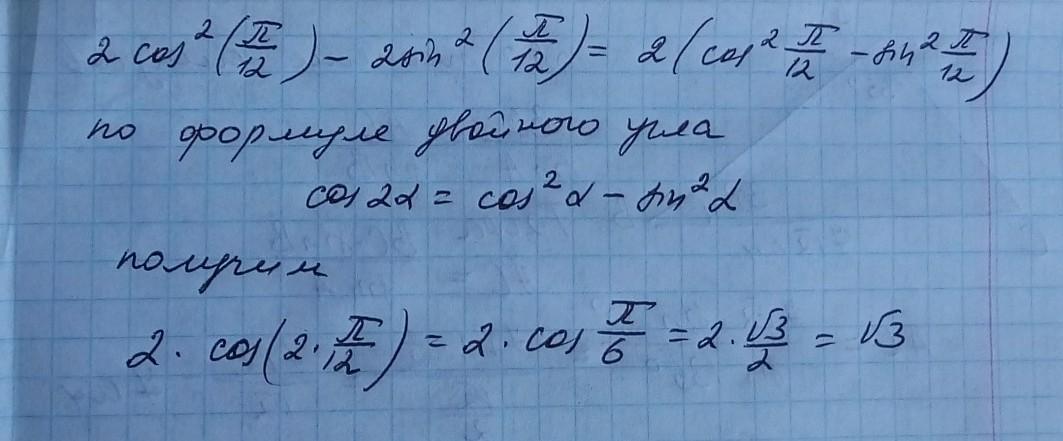 2 cos²(π/12) − 2 sin²(π/12) = 2(cos² π/12 − sin² π/12)
по формуле двойного угла
cos 2α = cos²α − sin²α
получим
2 · cos(2 · π/12) = 2 · cos π/6 = 2 · √3/2 = √3